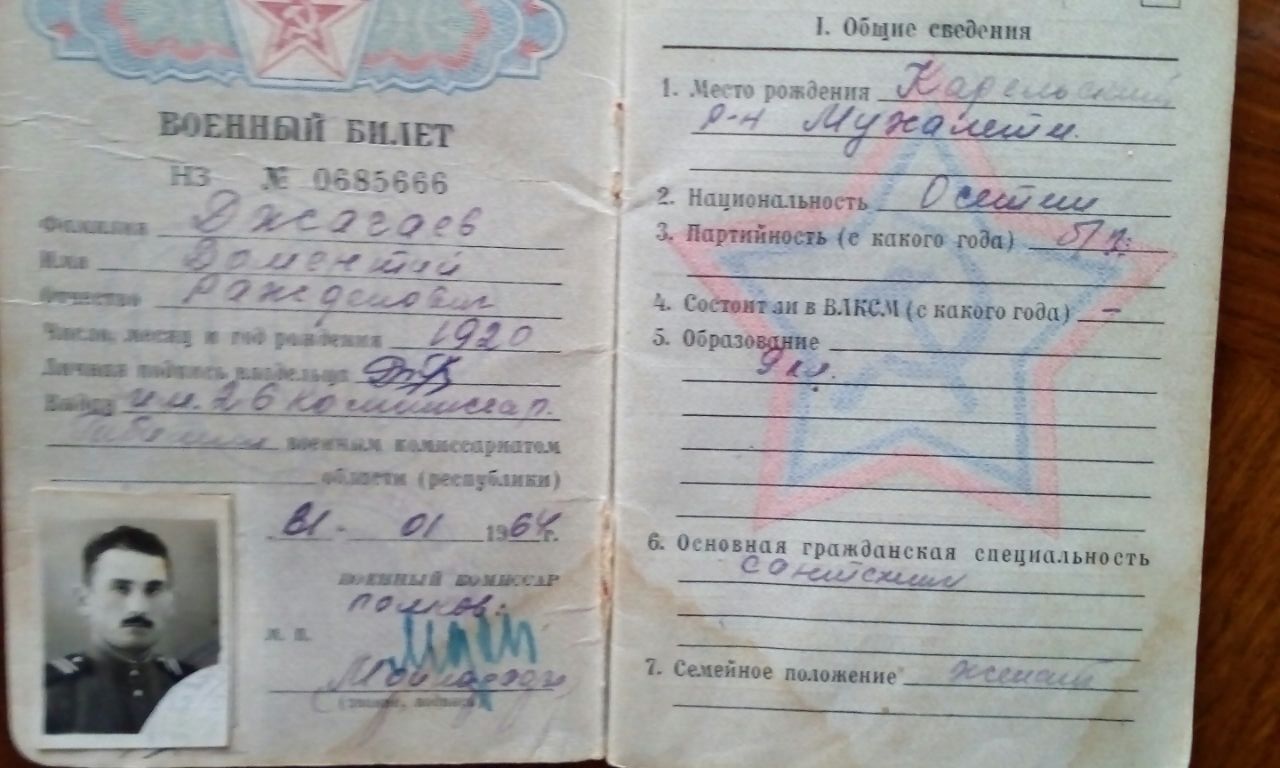 ВОЕННЫЙ БИЛЕТ
НЗ № 0685666
Фамилия Джагаев
Имя Доментий
Отчество Ражденович
Число, месяц и год рождения 1920
Личная подпись владельца
Выдан им. 26 комиссар.
военным комиссариатом
области (республики)
01 1964 г.
ВОЕННЫЙ КОМИССАР
полков.
М. П.
I. Общие сведения
1. Место рождения Карельский
р-н
2. Национальность Осетин
3. Партийность (с какого года) б/п.
4. Состоит ли в ВЛКСМ (с какого года) –
5. Образование
9 кл.
6. Основная гражданская специальность
7. Семейное положение женат